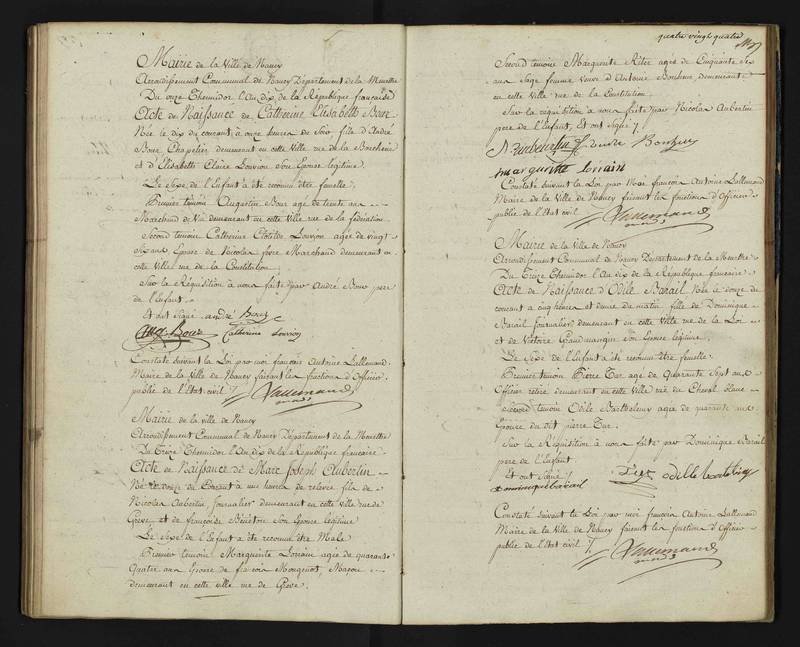 Mairie de la Ville de Nancy
Arrondissement Communal de Nancy Département de la Meurthe
Du onze Thermidor l'An dix de la République française
Acte de Naissance de Catherine Elisabeth Bour
Née le dix du courant, à onze heures du Soir fille d'André
Bour Chapelier demeurant en cette Ville rue de la
et d'Elisabeth Claire Louvion Son Epouse légitime.
Le Sexe de l'Enfant a été reconnu être femelle.
Premier témoin Augustin Bour agé de trente ans
Marchand de Vin demeurant en cette Ville rue de la féderation
Second témoin Catherine Clotilde Louvion agée de vingt
Six ans, Epouse de Nicolas Marchand demeurant en
cette Ville rue de la Constitution.
Sur la Réquisition à nous faite par André Bour père
de l'Enfant
Et ont Signé. andré Bour
aug Bour Catherine Louvion
Constaté Suivant la Loi par moi françois Antoine Lallemand
Maire de la Ville de Nancy faisant les fonctions d'Officier
public de l'Etat civil ./. Lallemand
Mairie de la ville de Nancy
Arrondissement Communal de Nancy Département de la Meurthe
Du Treize Thermidor l'An dix de la République française
Acte de Naissance de Marc Joseph Aubertin
Né le douze du Courant à une heure de relevée fils de
Nicolas Aubertin journalier demeurant en cette Ville rue de
Grève et de françoise Son Epouse légitime
Le Sexe de l'Enfant a été reconnu être Male
Premier témoin Marguerite Lorrain agée de quarante
Quatre ans Epouse de françois Mougenot, Maçon
demeurant en cette Ville rue de Grève.
quatre vingt quatre
Second témoin Marguerite agée de Cinquante Six
ans Sage femme Veuve d'Antoine Bonheur demeurante
en cette Ville rue de la Constitution
Sur la réquisition à nous faite par Nicolas Aubertin
père de l'Enfant, Et ont Signé ./.
N aubertin
marguerite lorrain
Constaté Suivant la Loi par Moi françois Antoine Lallemand
Maire de la Ville de Nancy faisant les fonctions d'Officier
public de l'Etat civil Lallemand
Mairie de la Ville de Nancy
Arrondissement Communal de Nancy Département de la Meurthe
Du Treize Thermidor l'An dix de la République française
Acte de Naissance d'Odile Barail Née le douze du
courant à cinq heures et demie du matin fille de Dominique
Barail journalier demeurant en cette Ville rue de la Loi
et de Victoire Grandmangue Son Epouse légitime.
Le Sexe de l'Enfant a été reconnu être femelle
Premier témoin Pierre Tur agé de Quarante Sept ans
Officier retiré demeurant en cette Ville rue du Cheval blanc
Second témoin Odile Barthelemy agée de quarante ans
Epouse du dit pierre Tur.
Sur la Réquisition à nous faite par Dominique Barail
père de l'Enfant
Et ont Signé ./.
Dominique barail odille
Constaté Suivant la Loi par moi françois Antoine Lallemand
Maire de la Ville de Nancy faisant les fonctions d'Officier
public de l'Etat civil ./. Lallemand